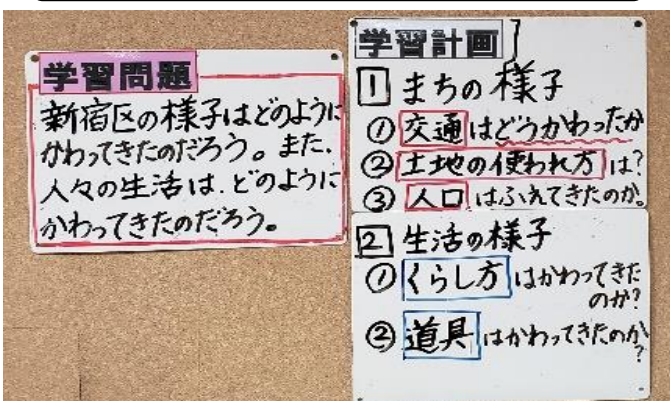 学習問題
新宿区の様子はどのように
かわってきたのだろう。また、
人々の生活は、どのように
かわってきたのだろう。
学習計画
1 まちの様子
① 交通はどうかわったか
② 土地の使われ方は?
③ 人口はふえてきたのか。
2 生活の様子
① くらし方はかわってきた
のか?
② 道具はかわってきたのか
?